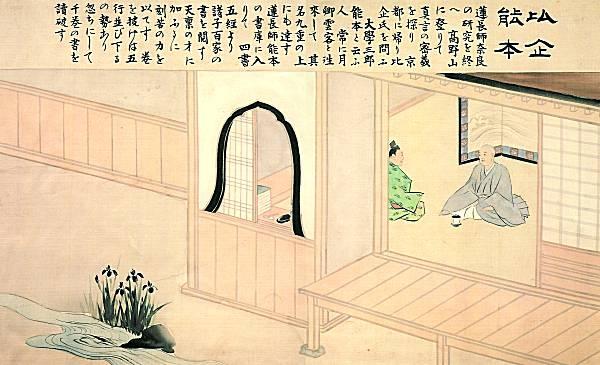 比企
能本
蓮長師奈良
の研究を終
へ 高野山
に登りて
真言の密義
を探り 京
都に帰り比
企氏を問ふ
大學三郎
能本と云ふ
人 常に月
卿雲客と往
來して 其
名九重の上
にも達す
蓮長師能本
の書庫に入
りて 四書
五経より
諸子百家の
書を閲す
天稟の才に
加ふるに
刻苦の力を
以てす 巻
を披けば五
行並び下る
の勢あり
忽ちにして
千巻の書を
讀破す